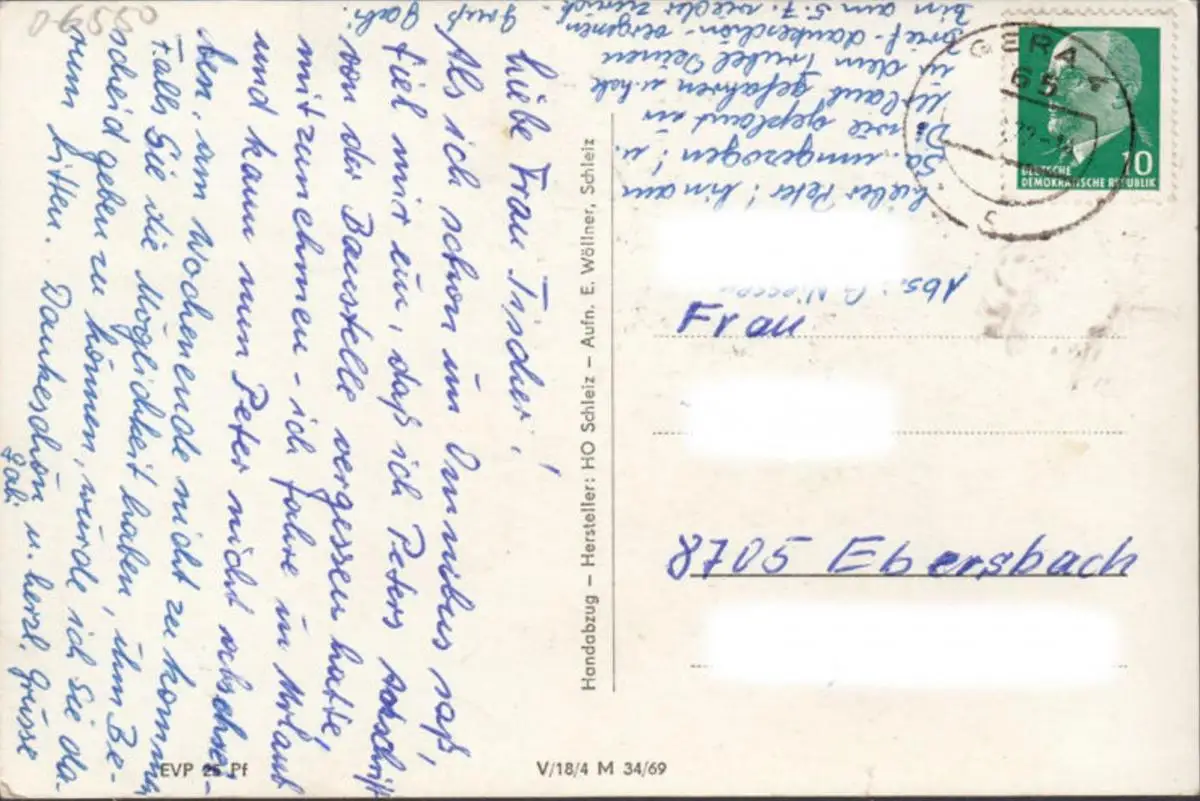 Liebe Frau Tischer!
Als ich schon im Omnibus saß,
fiel mir ein, daß ich Peters Anschrift
von der Baustelle vergessen hatte,
mitzunehmen - ich fahre in Urlaub
und kann nun Peter nicht abschrei-
ben, am Wochenende nicht zu kommen,
Falls Sie die Möglichkeit haben, ihm Be-
scheid geben zu können, würde ich Sie da-
rum bitten. Dankeschön u. herzl. Grüsse
Gabi
Lieber Peter! bin am
Sa. umgezogen! u.
Di. wie geplant in
Urlaub gefahren u. hab
in dem Trubel Deinen
Brief - dankeschön - vergessen
bin am 5.7. wieder zurück -
Gruß
Gabi.
Handabzug – Hersteller: HO Schleiz – Aufn. E. Wöllner, Schleiz
GERA 4
65
DEUTSCHE
DEMOKRATISCHE REPUBLIK
10
Abs.: G.
Frau
8705 Ebersbach
EVP 25 Pf
V/18/4 M 34/69